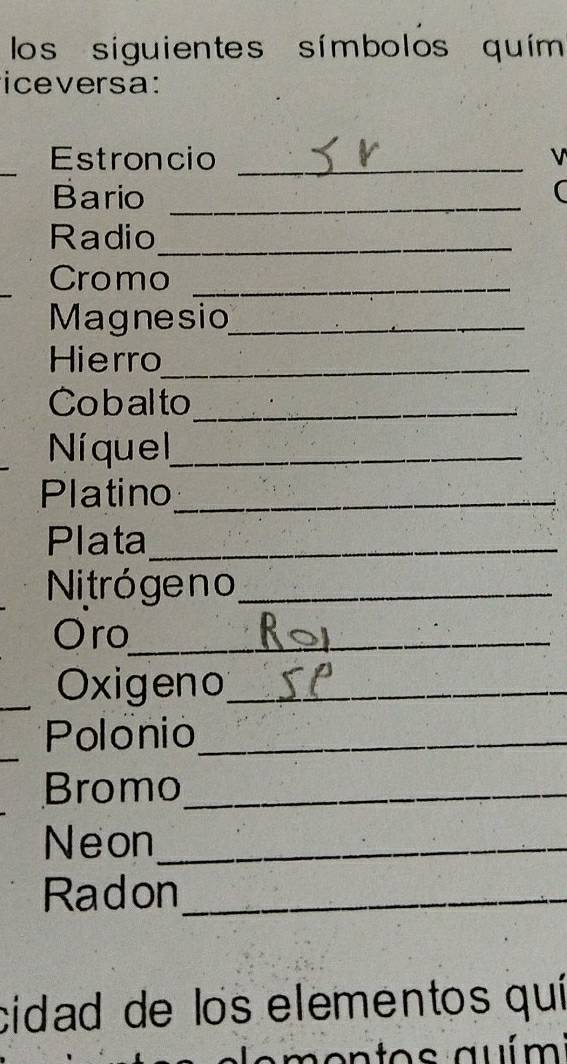 los siguientes símbolos quím
iceversa:
Estroncio Sr
Bario
Radio
Cromo
Magnesio
Hierro
Cobalto
Níquel
Platino
Plata
Nitrógeno
Oro Roi
Oxigeno SP
Polonio
Bromo
Neon
Radon
cidad de los elementos quí